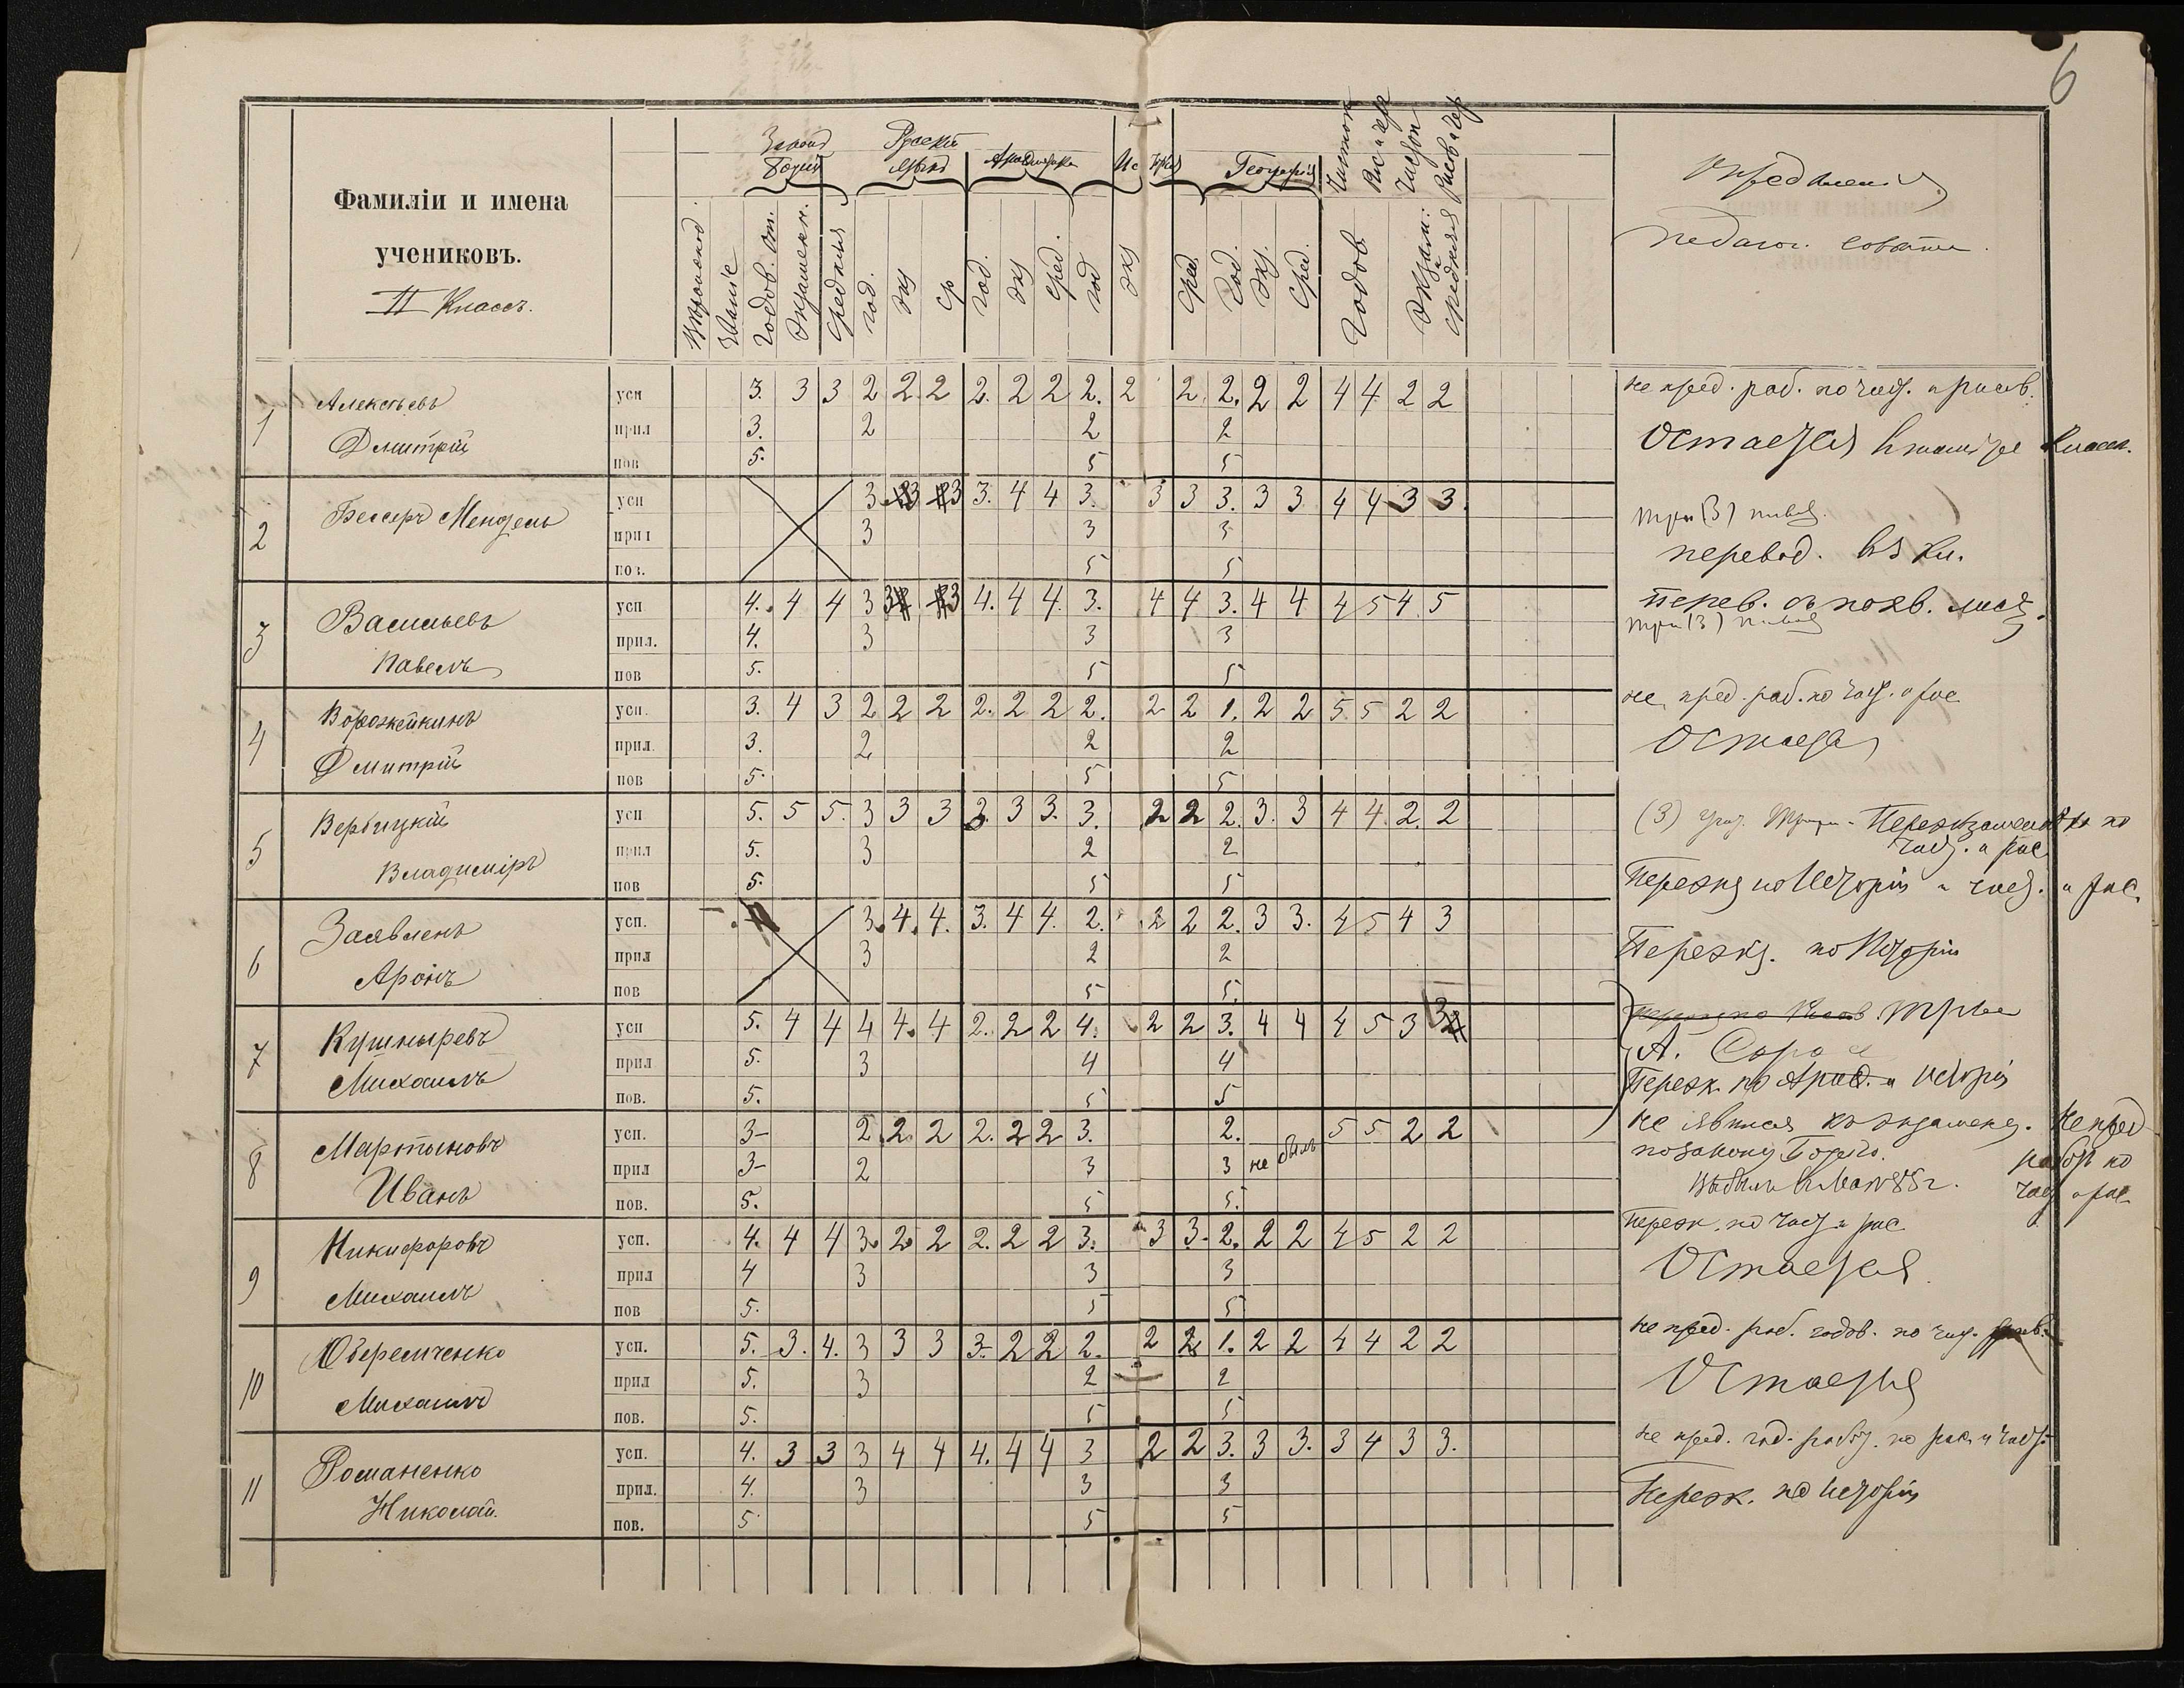 6
Фамиліи и имена учениковъ.
II Классъ.
Законъ Божій
Русскій языкъ
Ариѳметика
Исторія
Географія
Опредѣленія
педагог. совѣта.
Годов. от.
Экзаменн.
Средняя
год.
экз
ср
год.
экз
сред.
год
экз
сред.
год.
экз.
сред.
Годов.
Экзам.: и средняя
1 Алексѣевъ Дмитрій
усп 3. 3 3 2 2. 2 2. 2 2 2. 2 2. 2. 2 2 4 4 2 2
прил 3. 2 2 2
пов 5. 5 5
не пред. раб. по и рисов.
Остается въ томъ же классѣ.
2 Бессеръ Мендель
усп 3 3 3 3. 4 4 3. 3 3 3. 3 3 4 4 3 3.
прил 3 3 3
пов. 5 5
три (3)
перевод. въ кл.
3 Васильевъ Павелъ
усп 4. 4 4 3 3 3 4. 4 4. 3. 4 4 3. 4 4 4 5 4. 5
прил. 4. 3 3 3
пов 5. 5 5
Перев. съ похв. лист.
три (3)
4 Ворожейкинъ Дмитрій
усп. 3. 4 3 2 2 2 2. 2 2 2. 2 2 1. 2 2 5. 5 2 2
прил. 3. 2 2 2
пов 5. 5 5
не пред. раб. по и рис
Остается
5 Вербицкій Владиміръ
усп 5. 5 5. 3 3 3 3. 3 3. 3. 2 2 2. 3. 3 4 4. 2. 2
прил 5. 3 2 2
пов 5. 5 5
(3) Переэкзаменовка по
и рис
Переэкз по Исторіи и и рис.
6 Заявленъ Аронъ
усп. 3. 4. 4. 3. 4 4. 2. 2 2 2. 3 3. 4 5 4 3
прил 3 2 2
пов 5 5.
Переэкз. по Исторіи
7 Кушныревъ Михаилъ
усп 5. 4 4 4 4. 4 2. 2 2 4. 2 2 3. 4 4 4 5 3 3
прил 5. 3 4 4
пов. 5. 5 5
Переэк. по Ариѳ. и Исторіи
8 Мартыновъ Иванъ
усп. 3- 2 2. 2 2. 2 2 3. 2. 5 5 2 2
прил 3- 2 3 3 не былъ
пов. 5. 5 5.
не явился къ экзамену. Не пред
по закону Божію. работъ по
Выбылъ и рис.
9 Никифоровъ Михаилъ
усп. 4. 4 4 3. 2. 2 2. 2 2 3. 3 3. 2. 2 2 4 5 2 2
прил 4 3 3 3
пов 5. 5 5
Переэк. по и рис
Остается.
10 Оберемченко Михаилъ
усп. 5. 3. 4. 3 3 3 3. 2 2 2. 2 2 1. 2 2 4 4 2 2
прил 5. 3 2 2
пов. 5. 5 5
не пред. раб. годов. по
Остается
11 Романенко Николай.
усп. 4. 3 3 3 4 4 4. 4 4 3 2 2 3. 3 3. 3 4 3 3.
прил. 4. 3 3 3
пов. 5 5 5
не пред. год. работ. по рис. и
Переэк. по Исторіи